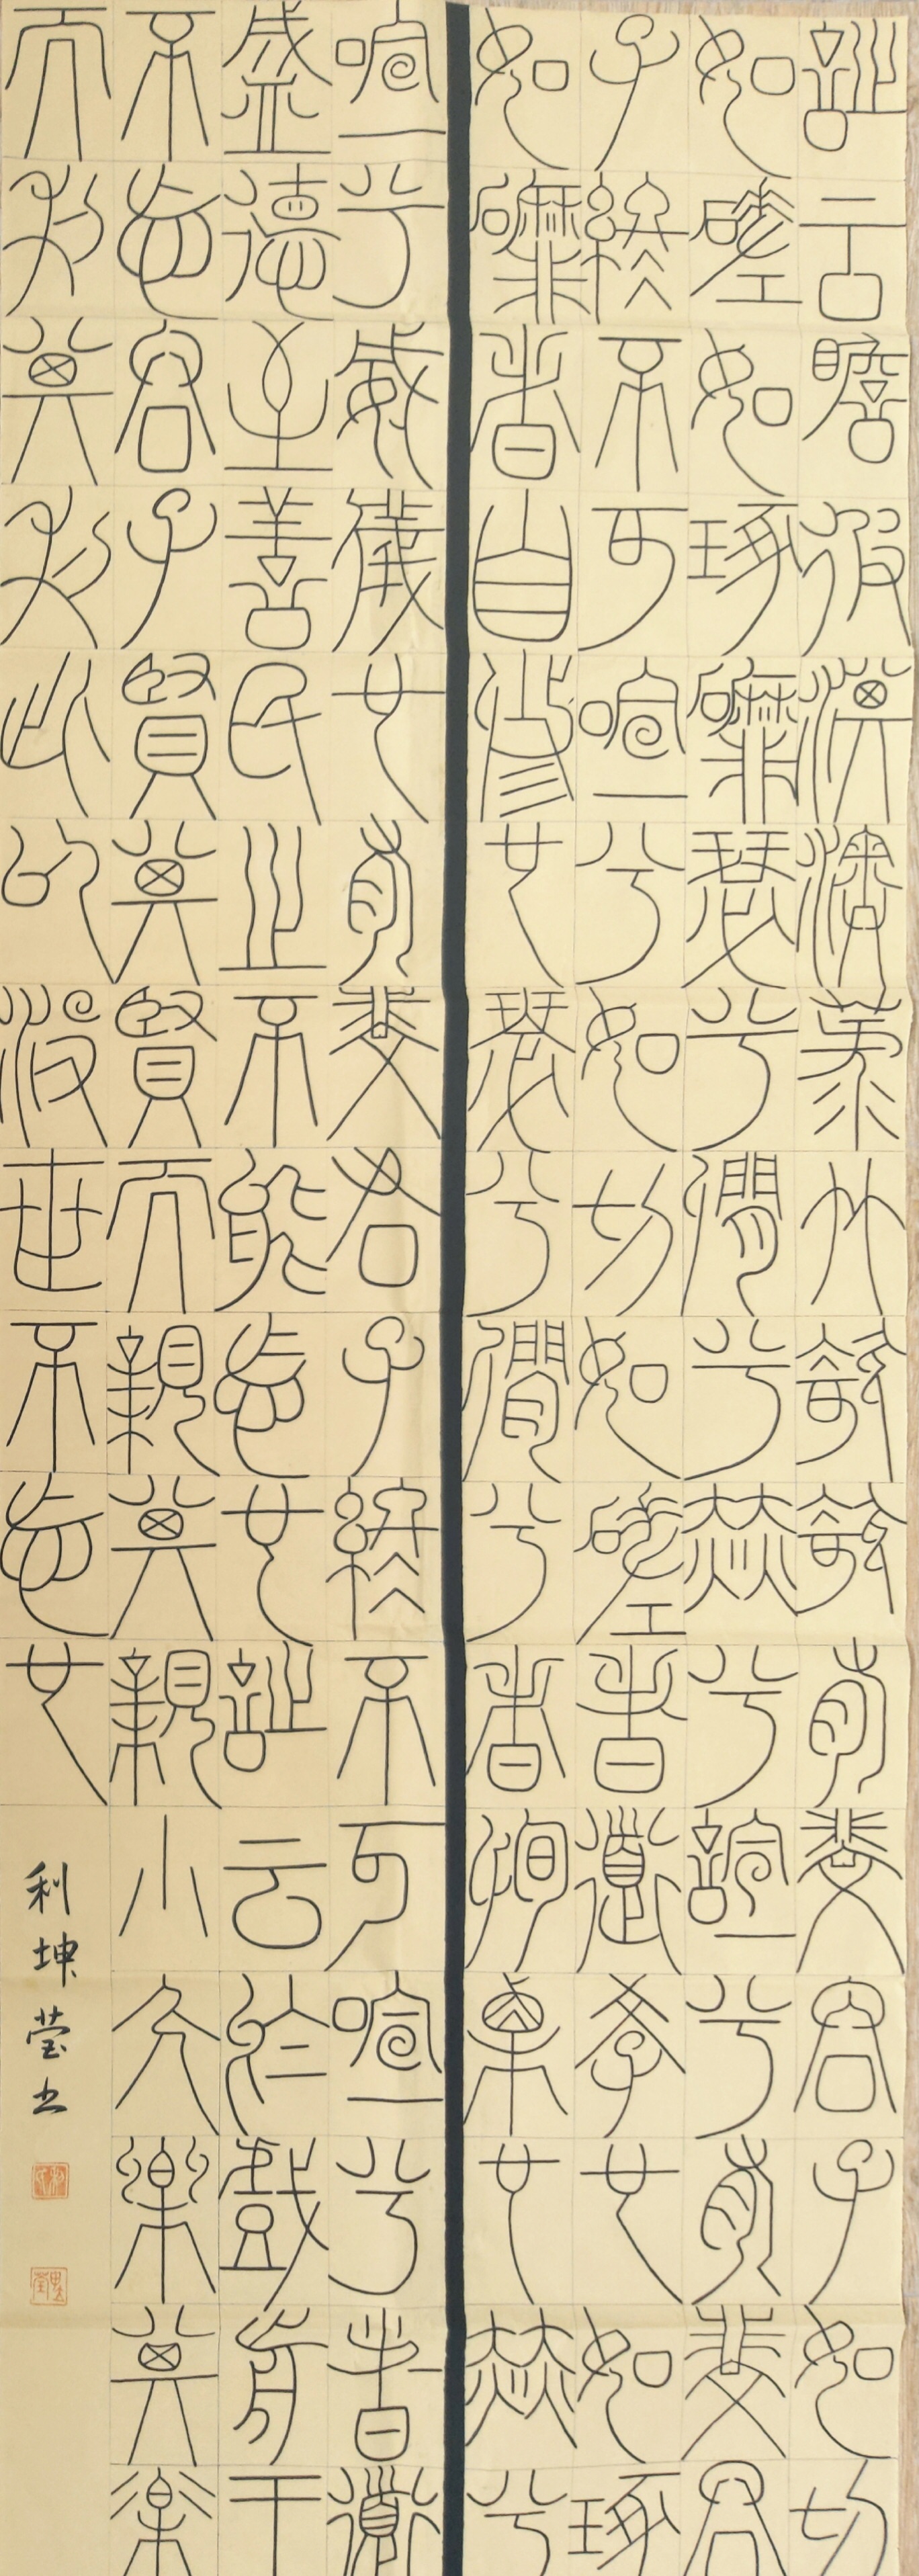 詩云瞻彼淇澳菉竹猗猗有斐君子如切
如磋如琢磨瑟兮僩兮赫兮諠兮有斐君
子終不可喧兮如切如磋者道學也如琢
如磨者自修也瑟兮僩兮者恂慄也赫兮
喧兮威儀也有斐君子終不可喧兮者道
盛德至善民之不能忘也詩云於戲前王
不忘君子賢其賢而親其親小人樂其樂
而利其利此以沒世不忘也
利坤莹书